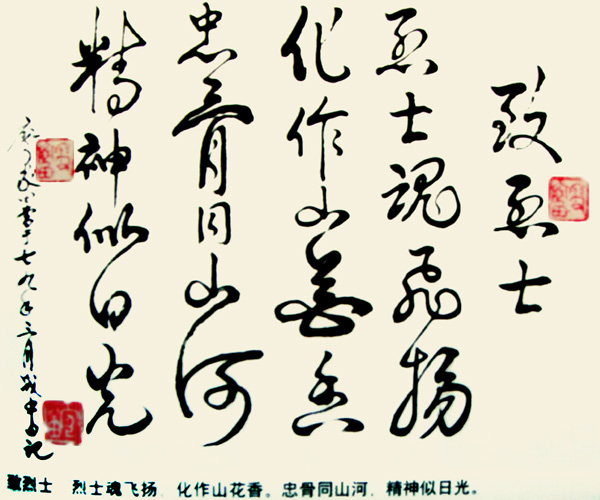 致烈士
烈士魂飞扬
化作山花香
忠骨同山河
精神似日光
七九年三月
致烈士 烈士魂飞扬，化作山花香。忠骨同山河，精神似日光。